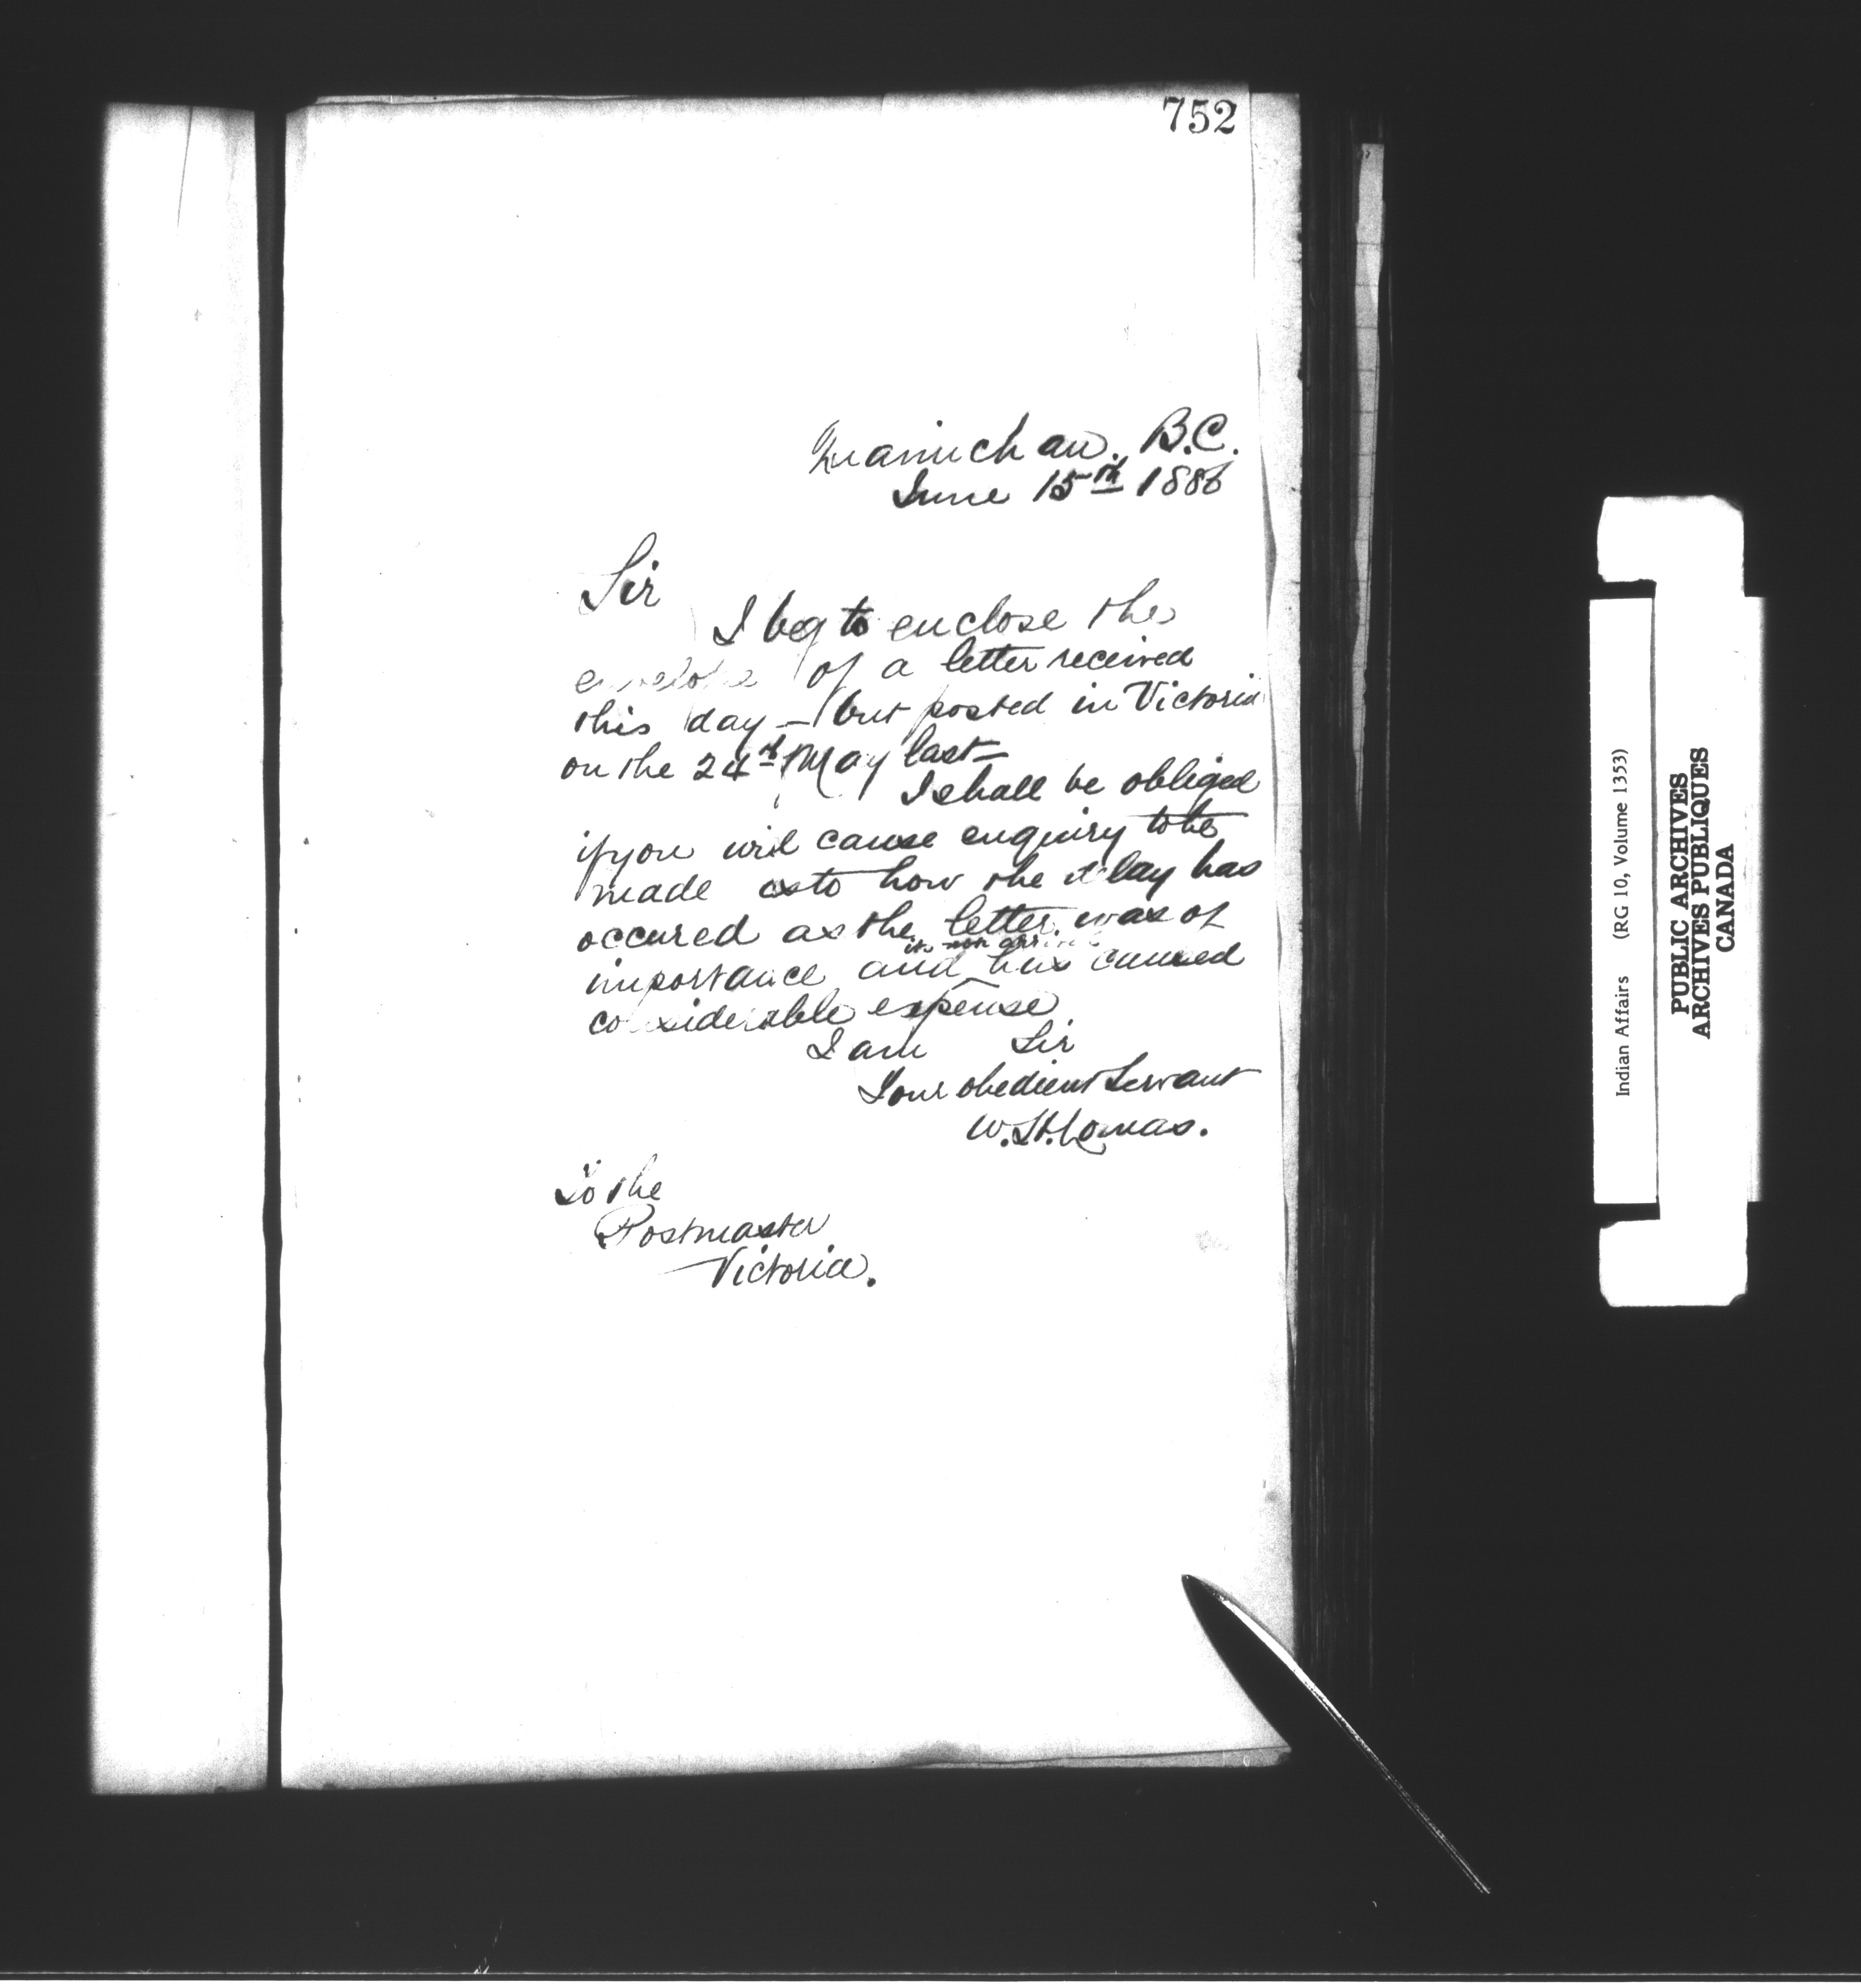 752
Quamichan. B.C.
June 15th 1886
Sir
I beg to enclose the
envelope of a letter received
this day – but posted in Victoria
on the 24th May last –
I shall be obliged
if you will cause enquiry to be
made as to how the delay has
occured as the letter was of
its non arrival
importance and has caused
considerable expense
I am Sir
Your obedient Servant
W. H. Lomas.
To the
Postmaster
Victoria.
Indian Affairs (RG 10, Volume 1353)
PUBLIC ARCHIVES
ARCHIVES PUBLIQUES
CANADA